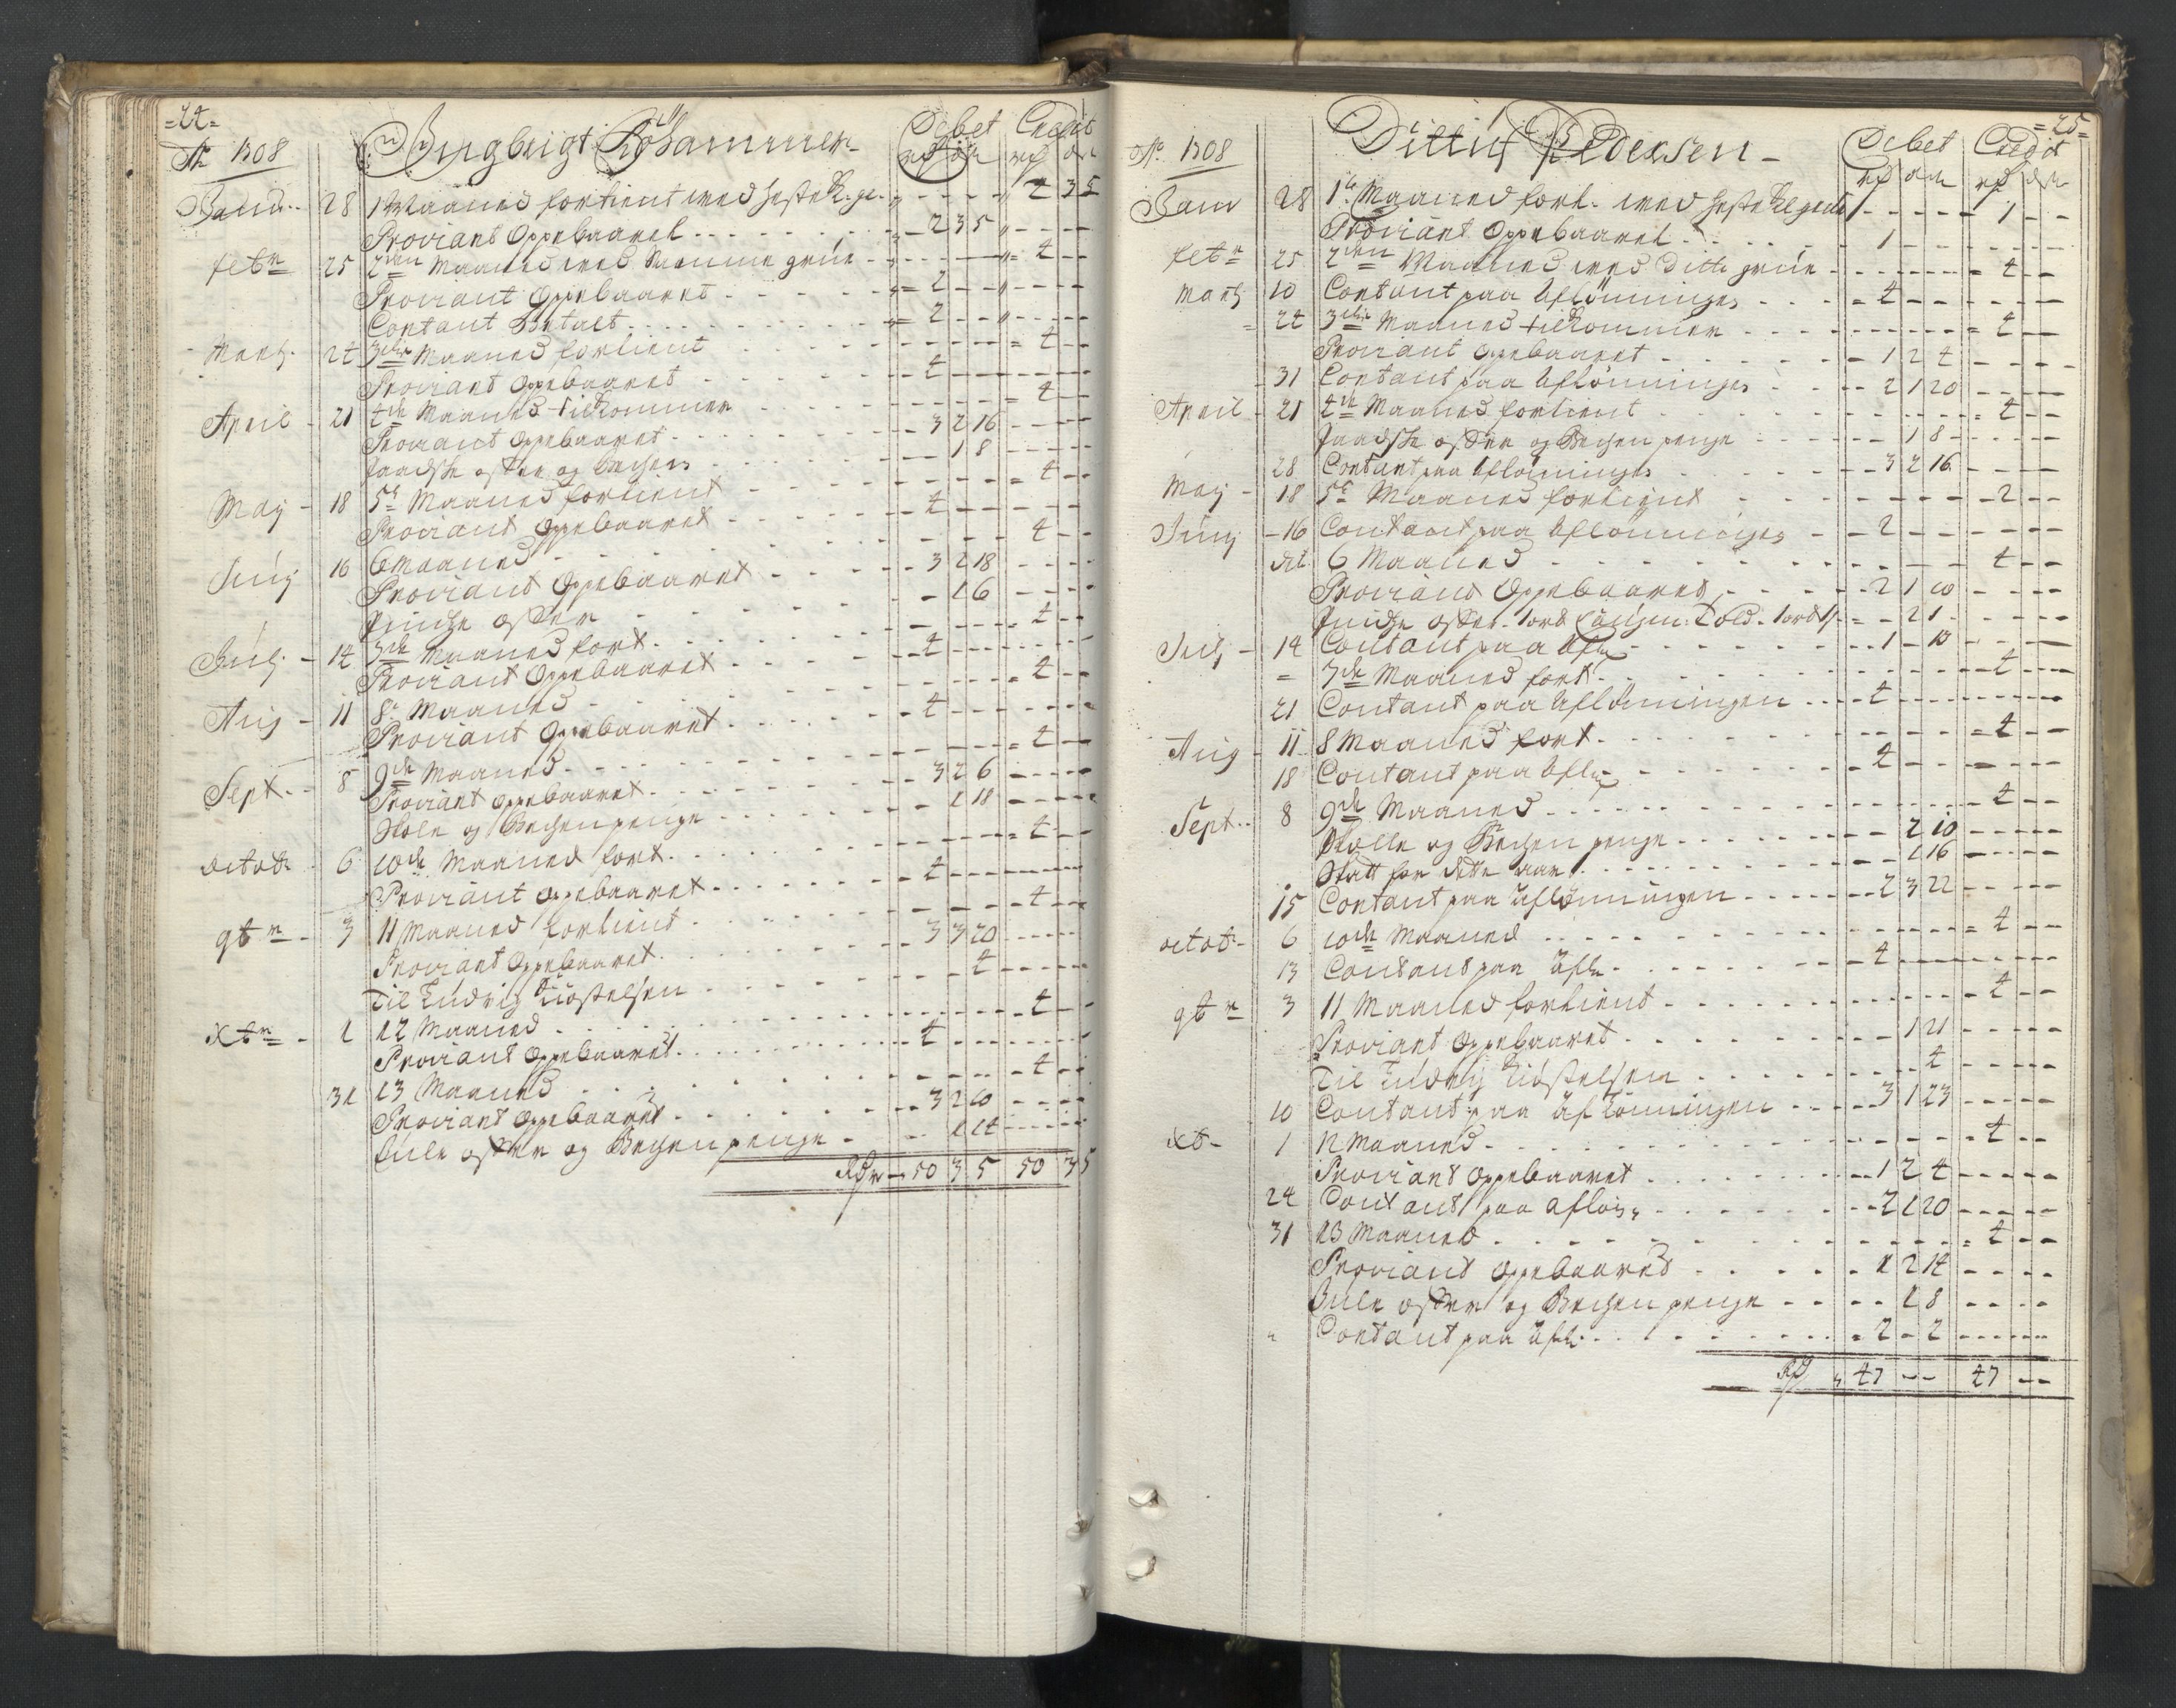 =24=
No 1708 Ingbrigt Köhammer Debet Credit
rd ort rd ort
Janu. 28 1 Maaned fortient med heste K. ge. 4 3 5
Proviant Oppebaaret 2 3 5
Febr 25 2den Maaned med samme gruv 4
Proviant Oppebaaret 2
Contant Betalt 2
Marti 24 3die Maaned fortient 4
Proviant Oppebaaret 4
April 21 4de Maaned tilkommer 4
Proviant Oppebaaret 3 2 16
Paaske offer og Becken 1 8
Maij 18 5te Maaned fortient 4
Proviant Oppebaaret 4
Junij 16 6 Maaned 4
Proviant Oppebaaret 3 2 18
Pindse offer 1 6
Julj 14 7de Maaned fort. 4
Proviant Oppebaaret 4
Aug 11 8de Maaned 4
Proviant Oppebaaret 4
Sept. 8 9de Maaned 4
Proviant Oppebaaret 3 2 6
Skole og Beckenpenge 1 18
octobr 6 10de Maaned fort. 4
Proviant Oppebaaret 4
9br 3 11 Maaned fortient 4
Proviant Oppebaaret 3 3 20
Til Ludvig 4
Xbr 1 12 Maaned 4
Proviant Oppebaaret 4
31 13 Maaned 4
Proviant Oppebaaret 3 2 10
Jule offer og Beckenpenge 1 14
Rdr 50 3 5 50 3 5
=25=
No 1708 Dittus Pedersen Debet Credit
rd ort rd ort
Janu 28 1te Maaned fort. med heste 1
Proviant Oppebaaret 1
Febr 25 2den Maaned med Ditto gruv 4
Marti 10 Contant paa Aflönningen 4
24 3die Maaned tilkommer 4
Proviant Oppebaaret 1 2 4
31 Contant paa Aflönningen 2 1 20
April 21 4de Maaned fortient 4
Paaske offer og Becken penge 1 8
28 Contant paa Aflönningen 3 2 16
Maij 18 5te Maaned fortient 2
Junij 16 Contant paa Aflönningen 2
dit. 6 Maaned 4
Proviant Oppebaaret 2 1 10
Pindse offer 2 1
Julj 14 Contant paa Afl. 1 - 13
= 7de Maaned fort. 4
21 Contant paa Aflönningen 4
Aug 11 8 Maaned fort. 4
18 Contant paa Afl. 4
Sept. 8 9de Maaned 4
Skolle og Becken penge 2 10
Skatt for dette aar 1 16
15 Contant paa Aflönningen 2 3 22
octobr 6 10de Maaned 4
13 Contant paa Afl. 4
9br 3 11 Maaned fortient 4
Proviant Oppebaaret 1 21
Til Ludvig 4
10 Contant paa Aflönningen 3 1 23
Xb 1 12 Maaned 4
Proviant Oppebaaret 1 2 4
24 Contant paa Aflön. 2 1 20
31 13 Maaned 4
Proviant Oppebaaret 1 2 14
Jule offer og Becken penge 1 8
Contant paa Afl. 2 - 2
Rd 47 - - 47 - -